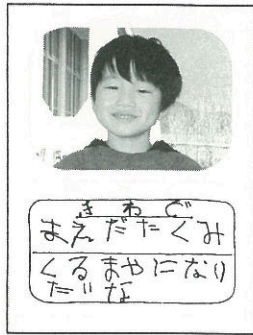 きわど
まえだたくみ
くるまやになり
だいな